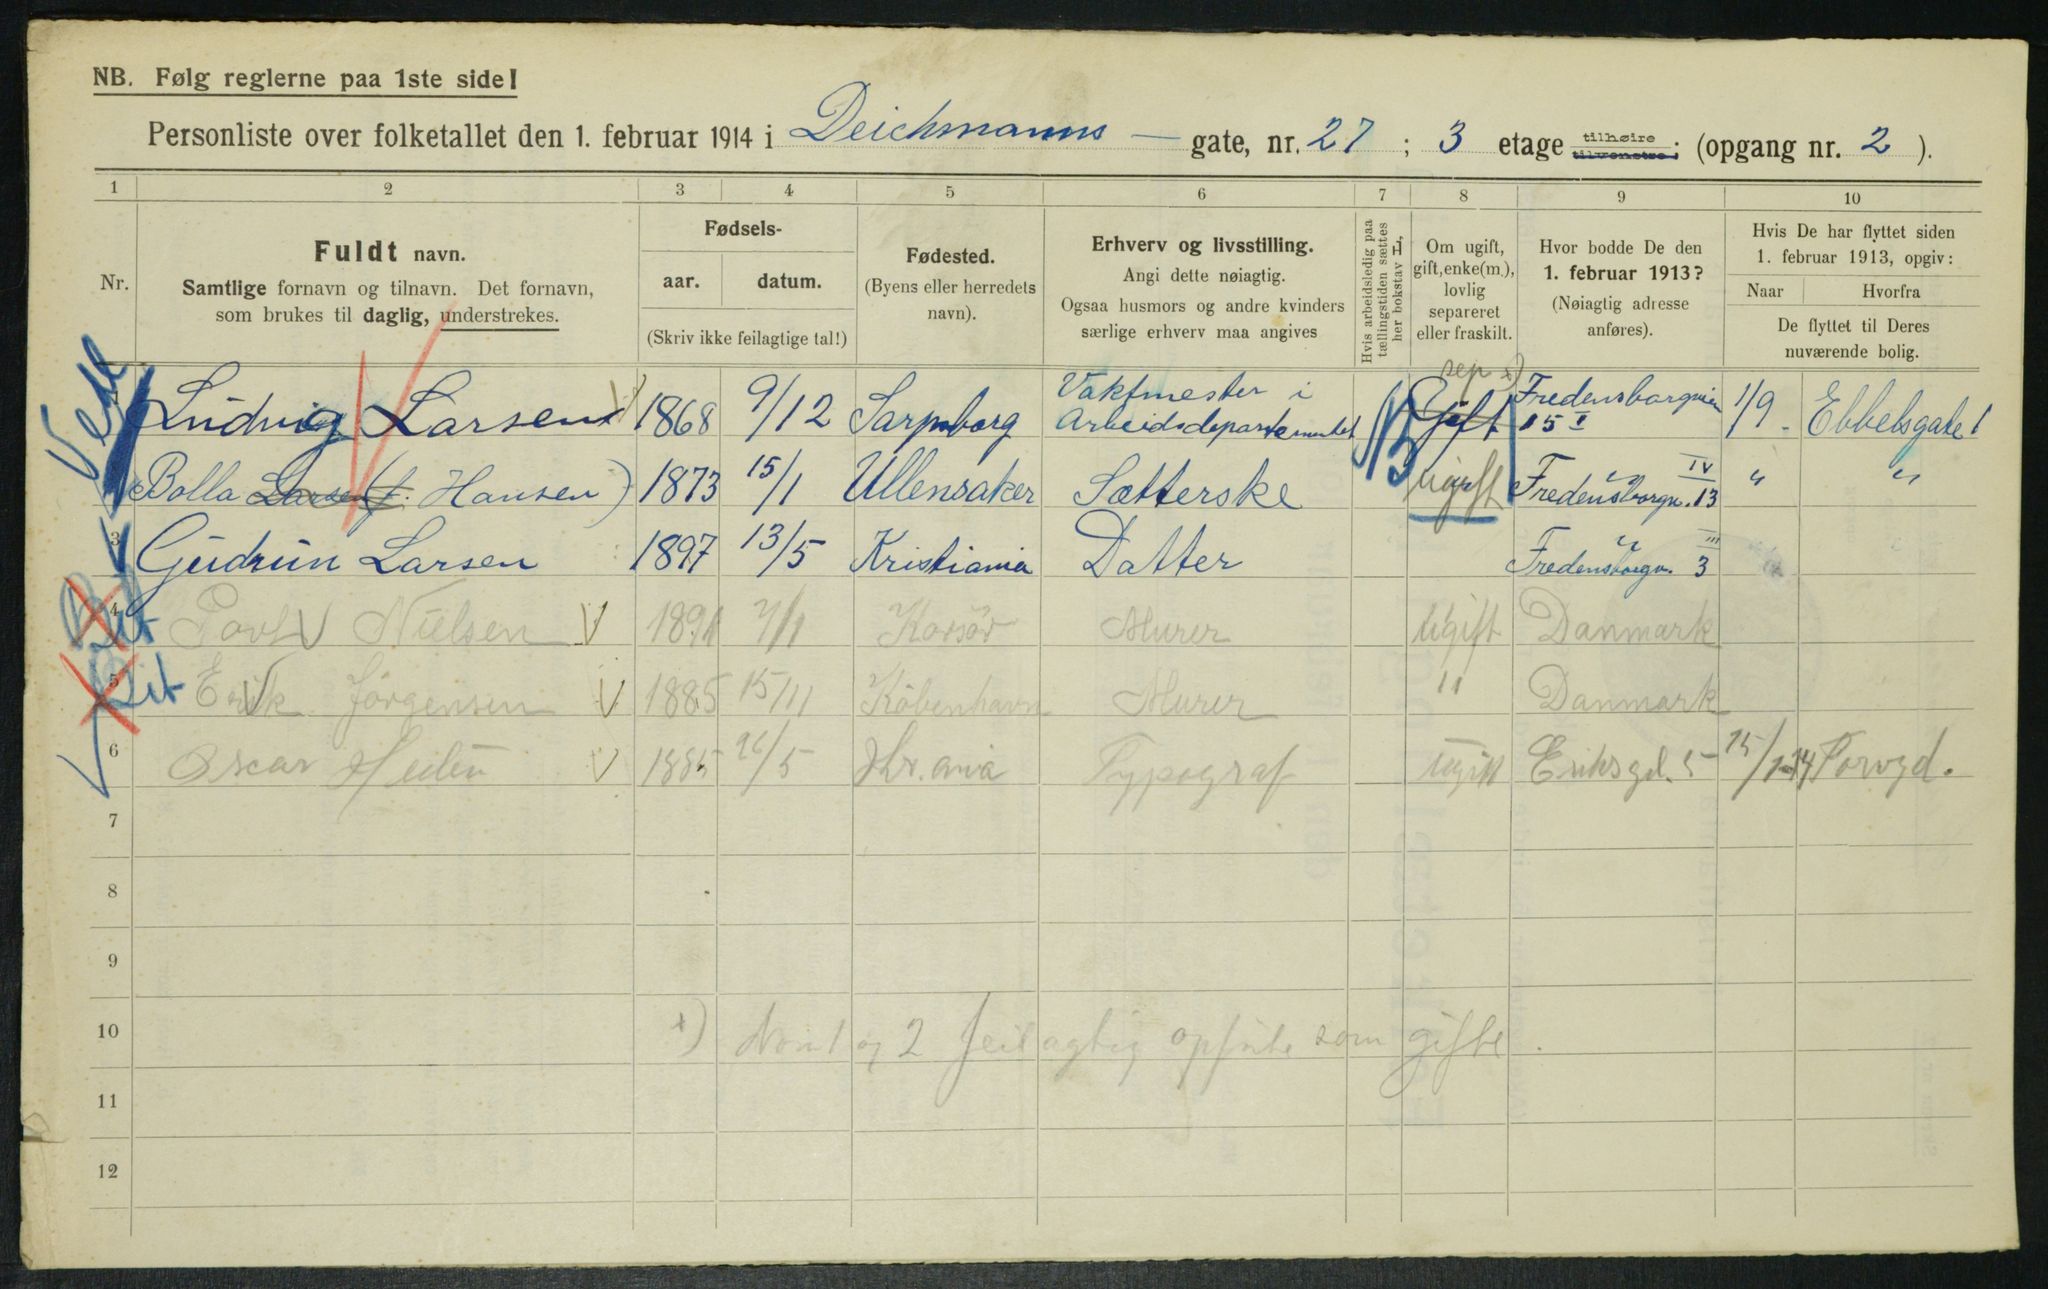 NB. Følg reglerne paa 1ste side!
Personliste over folketallet den 1. februar 1914 i Deichmanns — gate, nr. 27 ; 3 etage tilhøire tilvenstre; (opgang nr. 2 ).
1 2 3 4 5 6 7 8 9 10
Nr.
Fuldt navn.
Samtlige fornavn og tilnavn. Det fornavn,
som brukes til daglig, understrekes.
Fødsels-
aar. datum.
(Skriv ikke feilagtige tal!)
Fødested.
(Byens eller herredets
navn).
Erhverv og livsstilling.
Angi dette nøiagtig.
Ogsaa husmors og andre kvinders
særlige erhverv maa angives
Hvis arbeidsledig paa
tællingstiden sættes
her bokstav H,
Om ugift,
gift, enke(m.),
lovlig
separeret
eller fraskilt.
Hvor bodde De den
1. februar 1913?
(Nøiagtig adresse
anføres).
Hvis De har flyttet siden
1. februar 1913, opgiv:
Naar Hvorfra
De flyttet til Deres
nuværende bolig.
sep x)
1 Ludvig Larsen 1868 9/12 Sarpsborg Vaktmester i Arbeidsdepartementet Gift Fredensborgveien 15 I 1/9 - Ebbelsgate 1
Bolla Larsen (f. Hansen) 1873 15/1 Ullensaker Sætterske ugift Fredensborgv. 13 IV " "
3 Gudrun Larsen 1897 13/5 Kristiania Datter Fredensborgv. 3 III
4 Povl Nielsen 1891 7/1 Korsör Murer Ugift Danmark
5 Erik Jörgensen 1885 15/11 Köbenhavn Murer " Danmark
6 Oscar Heden 1885 26/5 Kr.ania Typograf Ugift Eriksgd. 5 15/1-14 Torvgd.
7
8
9
10 x) No 1 og 2 feilagtig opförte som gifte.
11
12